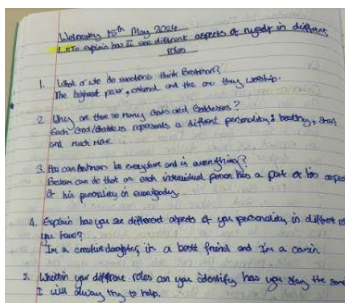 Wednesday 15th May 2024
L.O To explain how I see different aspects of myself in different
roles
1. What or who do Hindus think Brahman?
The highest power, eternal and the one they worship.
2. Why are there so many Gods and Goddesses?
Each God/Goddess represents a different personality,
and much more.
3. How can Brahman be everywhere and in everything?
Brahman can do that as each individual person has a part or
of his personality in everybody.
4. Explain how you see different aspects of your personality, in different
you have?
Im a creative daughter, in a best friend and im a
5. Within your different roles can you identify how you stay the same
I will always try to help.